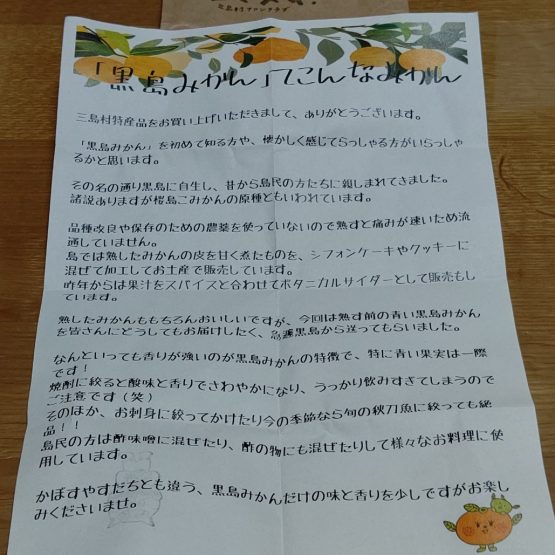 三島村ファンクラブ
「黒島みかん」てこんなみかん
三島村特産品をお買い上げいただきまして、ありがとうございます。
「黒島みかん」を初めて知る方や、懐かしく感じてらっしゃる方がいらっしゃ
るかと思います。
その名の通り黒島に自生し、昔から島民の方たちに親しまれてきました。
諸説ありますが桜島こみかんの原種ともいわれています。
品種改良や保存のための農薬を使っていないので熟すと痛みが速いため流
通していません。
島では熟したみかんの皮を甘く煮たものを、シフォンケーキやクッキーに
混ぜて加工してお土産で販売しています。
昨年からは果汁をスパイスと合わせてボタニカルサイダーとして販売もし
ています。
熟したみかんももちろんおいしいですが、今回は熟す前の青い黒島みかん
を皆さんにどうしてもお届けしたく、急遽黒島から送ってもらいました。
なんといっても香りが強いのが黒島みかんの特徴で、特に青い果実は一際
です！
焼酎に絞ると酸味と香りでさわやかになり、うっかり飲みすぎてしまうので
ご注意です（笑）
そのほか、お刺身に絞ってかけたり今の季節なら旬の秋刀魚に絞っても絶
品！！
島民の方は酢味噌に混ぜたり、酢の物にも混ぜたりして様々なお料理に使
用しています。
かぼすやすだちとも違う、黒島みかんだけの味と香りを少しですがお楽し
みくださいませ。